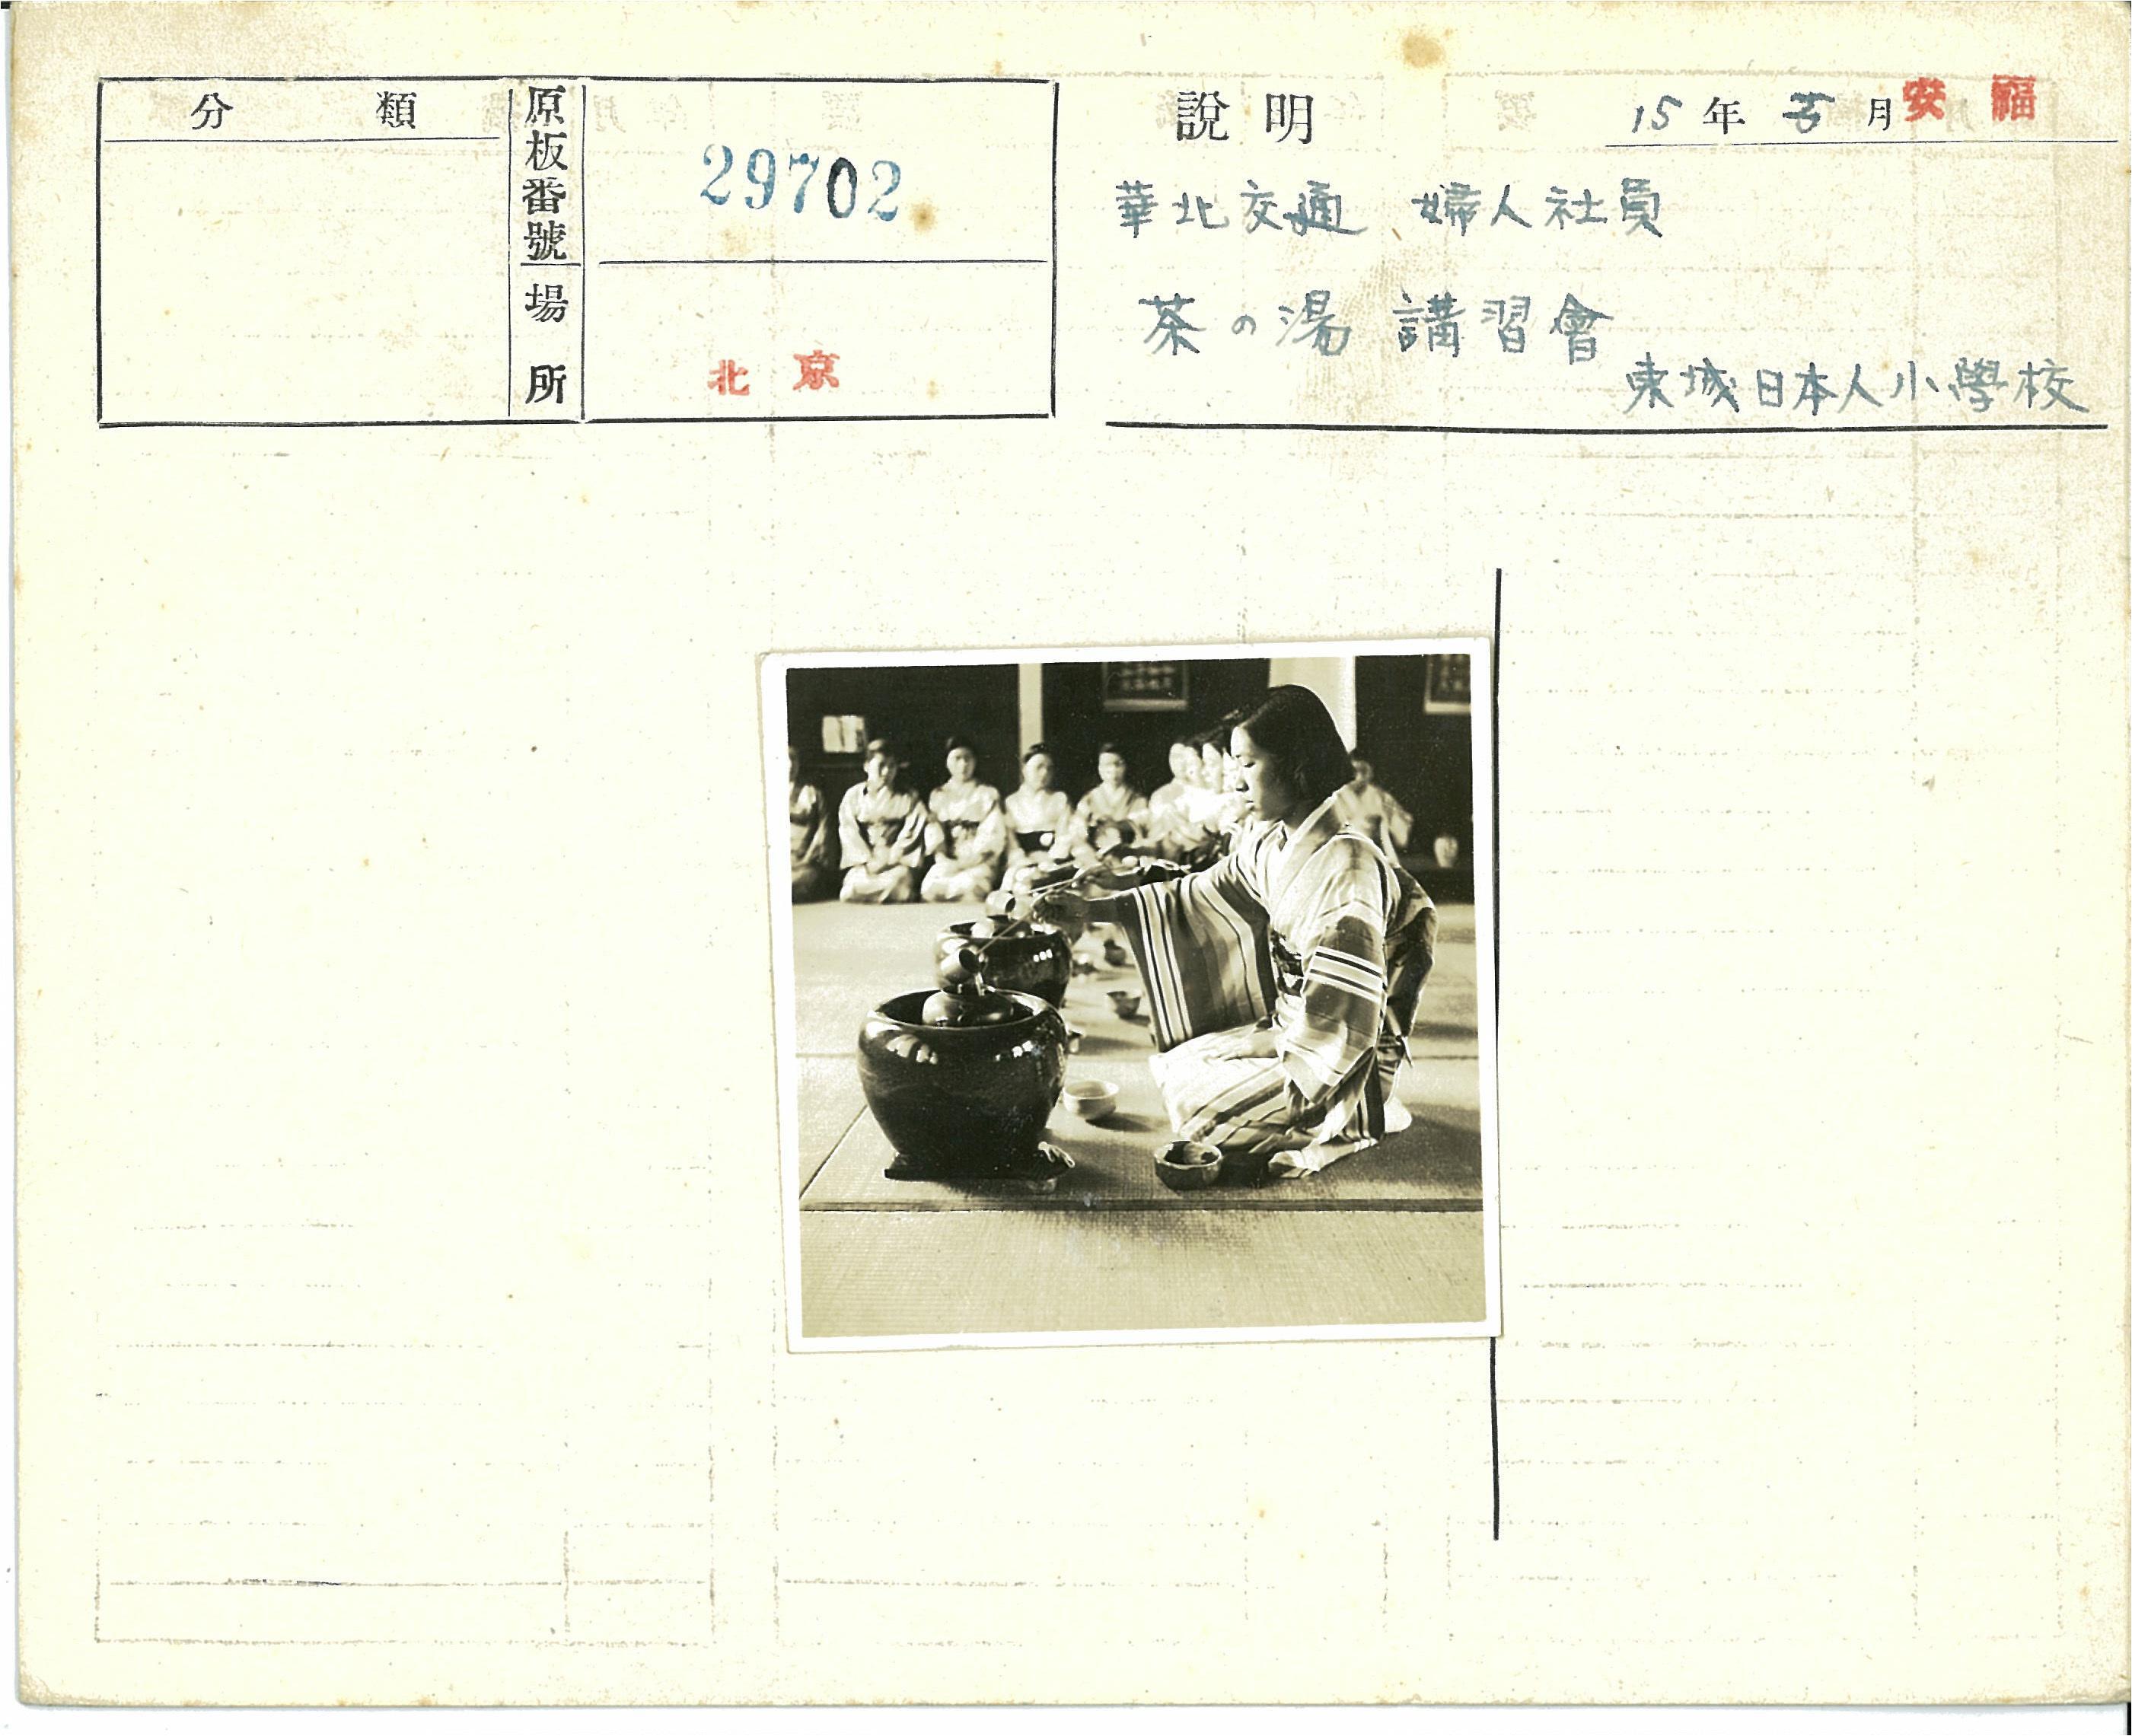 分類
原板番號
29702
場所
北京
說明
15年 月
安福
華北交通 婦人社員
茶の湯 講習會
東城日本人小學校